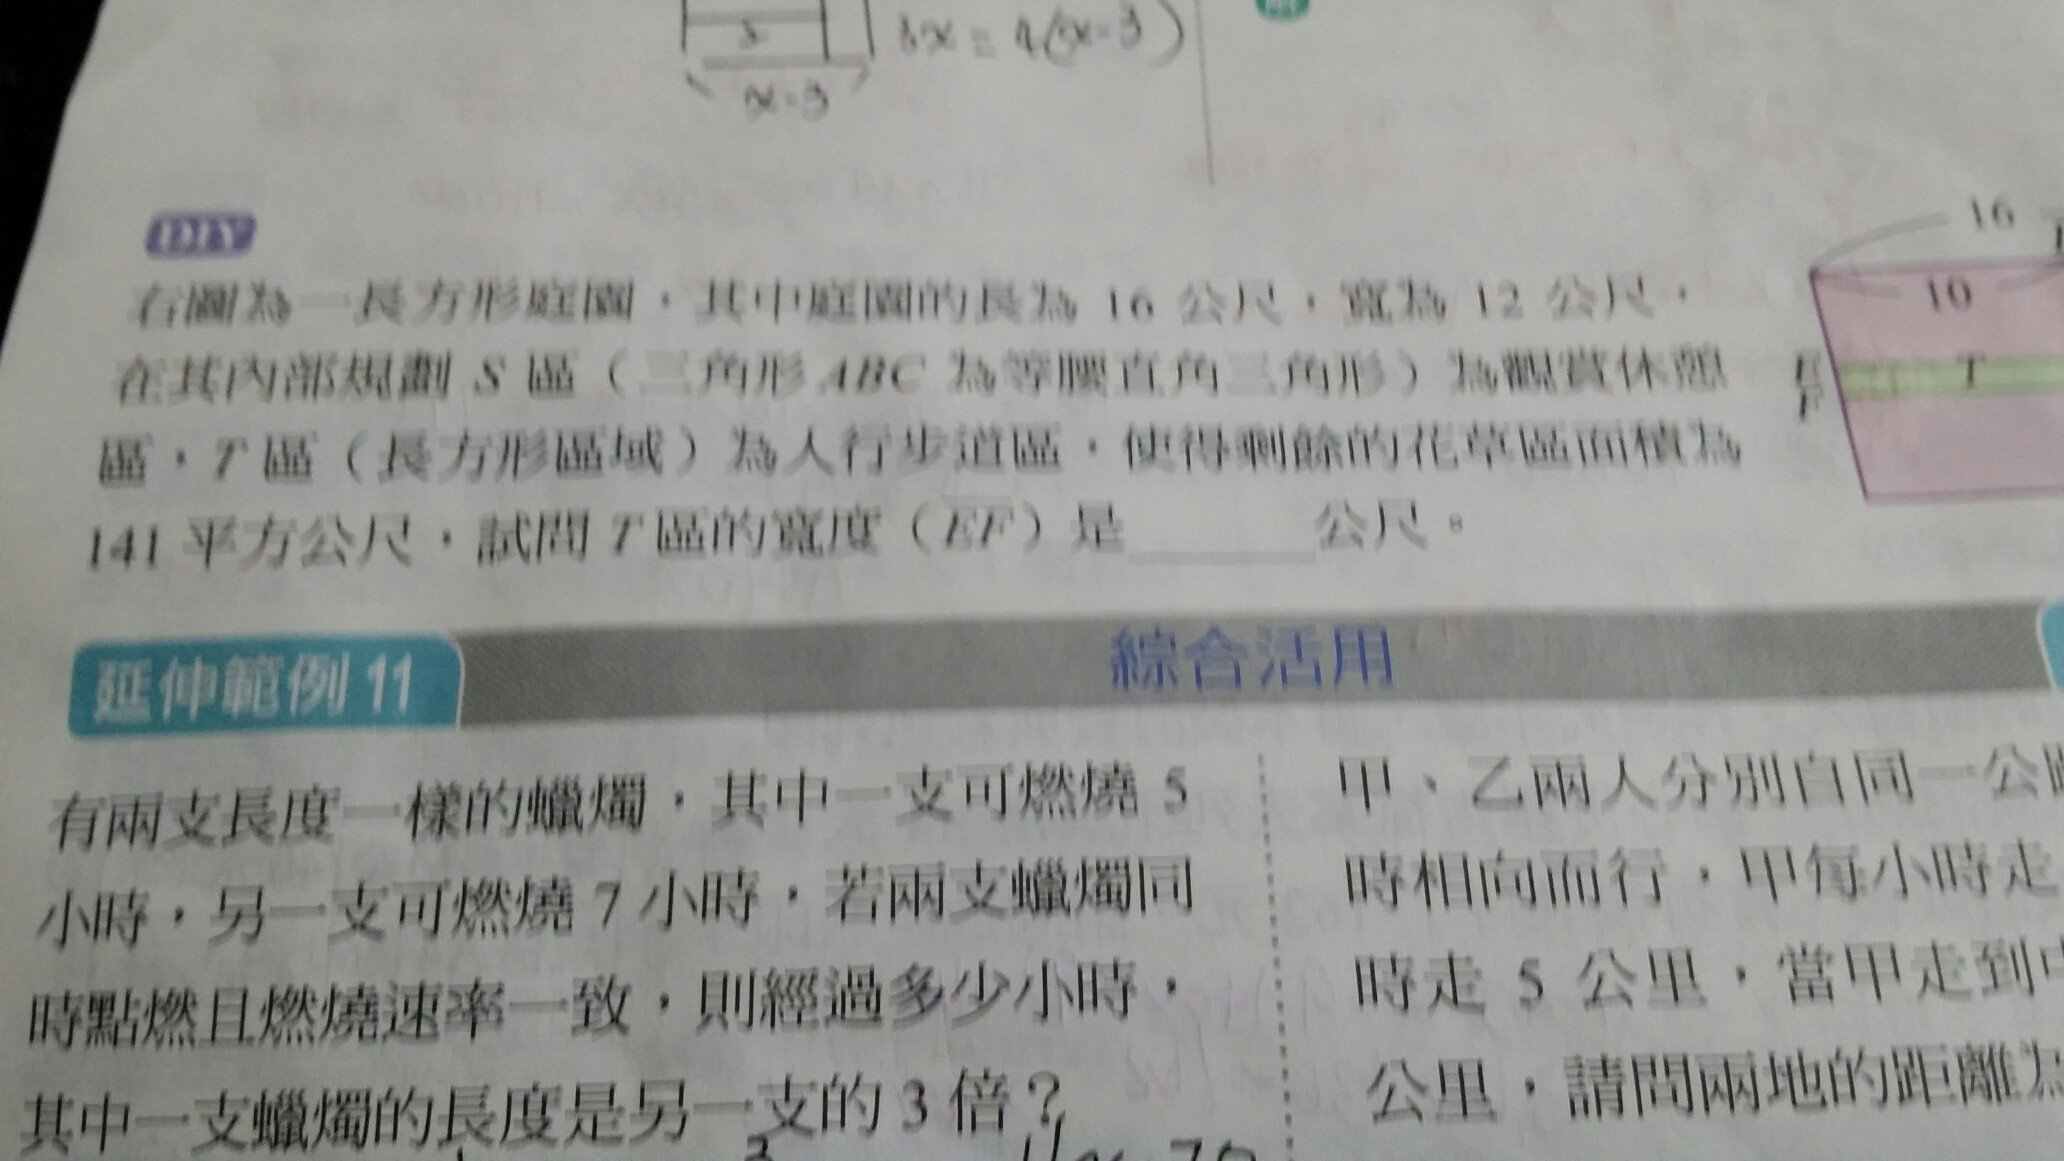 5
3x = 4(x-3)
x-3
DIY
16
10
右圖為一長方形庭園，其中庭園的長為 16 公尺，寬為 12 公尺，
在其內部規劃 S 區（三角形 ABC 為等腰直角三角形）為觀賞休憩
E
T
F
區，T 區（長方形區域）為人行步道區，使得剩餘的花草區面積為
141 平方公尺，試問 T 區的寬度（EF）是______公尺。
延伸範例 11
綜合活用
有兩支長度一樣的蠟燭，其中一支可燃燒 5
小時，另一支可燃燒 7 小時，若兩支蠟燭同
時點燃且燃燒速率一致，則經過多少小時，
其中一支蠟燭的長度是另一支的 3 倍？
甲、乙兩人分別自同一公
時相向而行，甲每小時走
時走 5 公里，當甲走到
公里，請問兩地的距離為